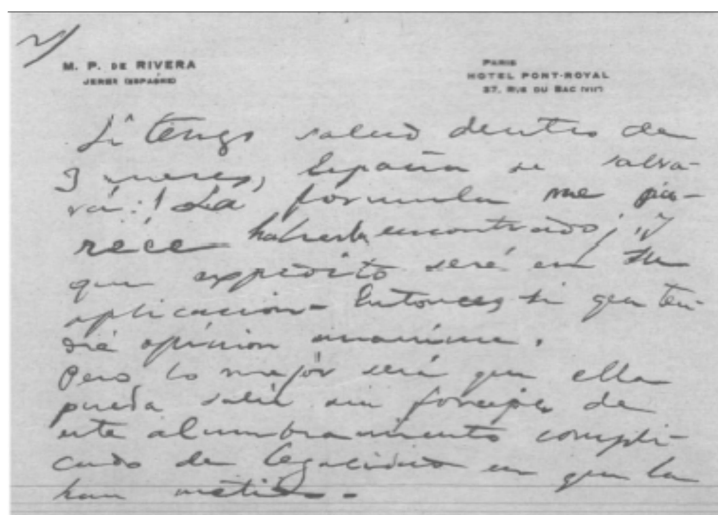 2/
M. P. DE RIVERA
JEREZ (ESPAGNE)
PARIS
HOTEL PONT-ROYAL
37, RUE DU BAC (VIIe)
Si tengo salud dentro de
3 meses, España se salva-
rá! La formula me pa-
rece haberla encontrado; ¡y
que expedito seré en su
aplicacion- Entonces si que ten-
dré opinion unanime.
Pero lo mejor será que ella
pueda salir sin forceps de
este alumbramiento compli-
cado de legalidad en que la
han metido-